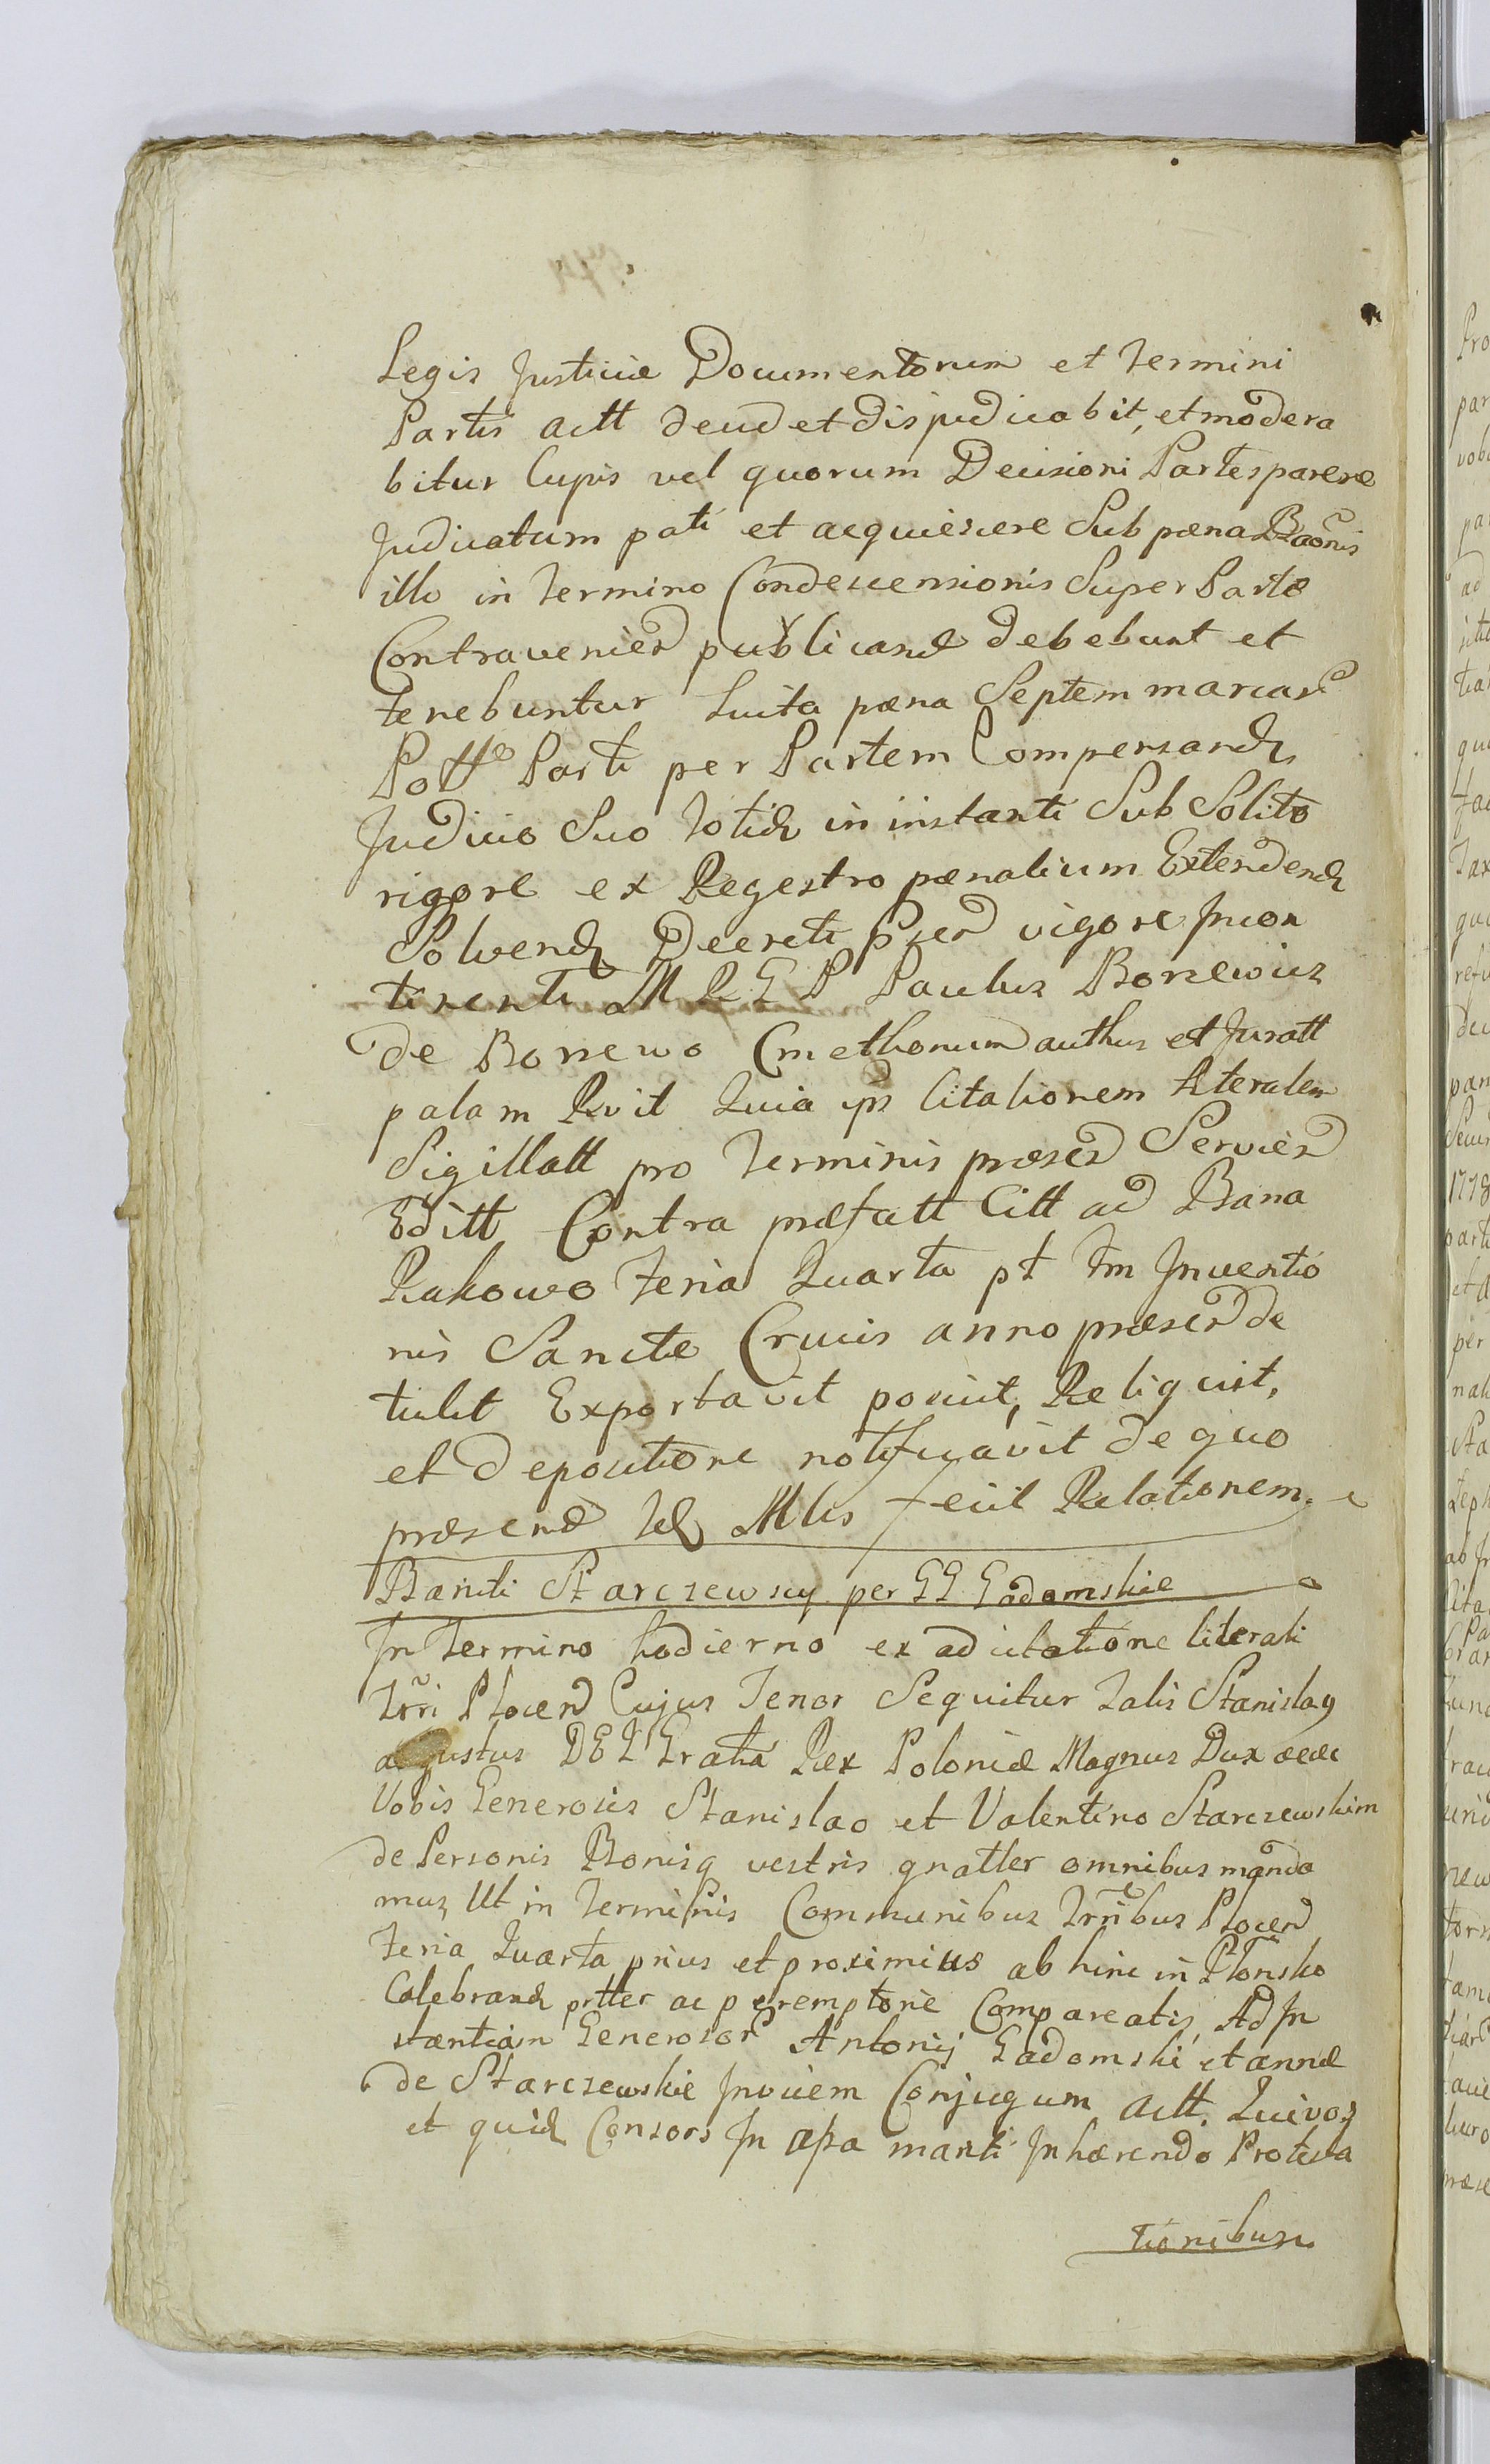 Legis Justiciæ Documentorum et Termini
Partis Actt decid et disjudicabit, et modera
bitur Cujus vel quorum Decisioni Partes parere
Judicatum pati et acquiescere Sub pæna Baõnis
illo in Termino Condescensionis Super Parte
Contravenied publicand debebunt et
tenebuntur Luita pæna Septem marcar
Potte Parti per Partem Compensand
Judicio Suo Totid in instanti Sub Solito
rigore ex Regestro pænalium Extendend
Solvend Decreti præd vigore Incon
tinenti M R G P Paulus Bonewicz
de Bonewo Cmethonum authus et Juratt
palam Rvit Quia ips Citationem literalem
Sigillatt pro Terminis præsed Servied
Editt Contra præfatt Citt ad Bana
Rakowo Feria Quarta pt Fm Inventio
nis Sanctæ Crucis anno præsed de
tulit Exportavit posuit, Reliquit,
et depositione notificavit de quo
præsend Id Mlis Fecit Relationem.
Baniti Starczewscy per GG Gadomskie
In Termino hodierno ex ad citatione literali
Trri Plocend Cujus Tenor Sequitur Talis Stanislaus
augustus DEI Gratia Rex Poloniæ Magnus Dux ææc
Vobis Generosis Stanislao et Valentino Starczewskim
de Personis Bonisq vestris gnatler omnibus manda
mus, Ut in Terminis Communibus Trribus Plocend
Feria Quarta prius et proximius ab hinc in Płonsko
Celebrand prtter ac peremptorie Compareatis Ad In
stantiam Generosor Antonij Gadomski et annæ
de Starczewskie Invicem Conjugum Actt. Qui vos
et quid Consors In assa mariti Inhærendo Protesta
tionibus